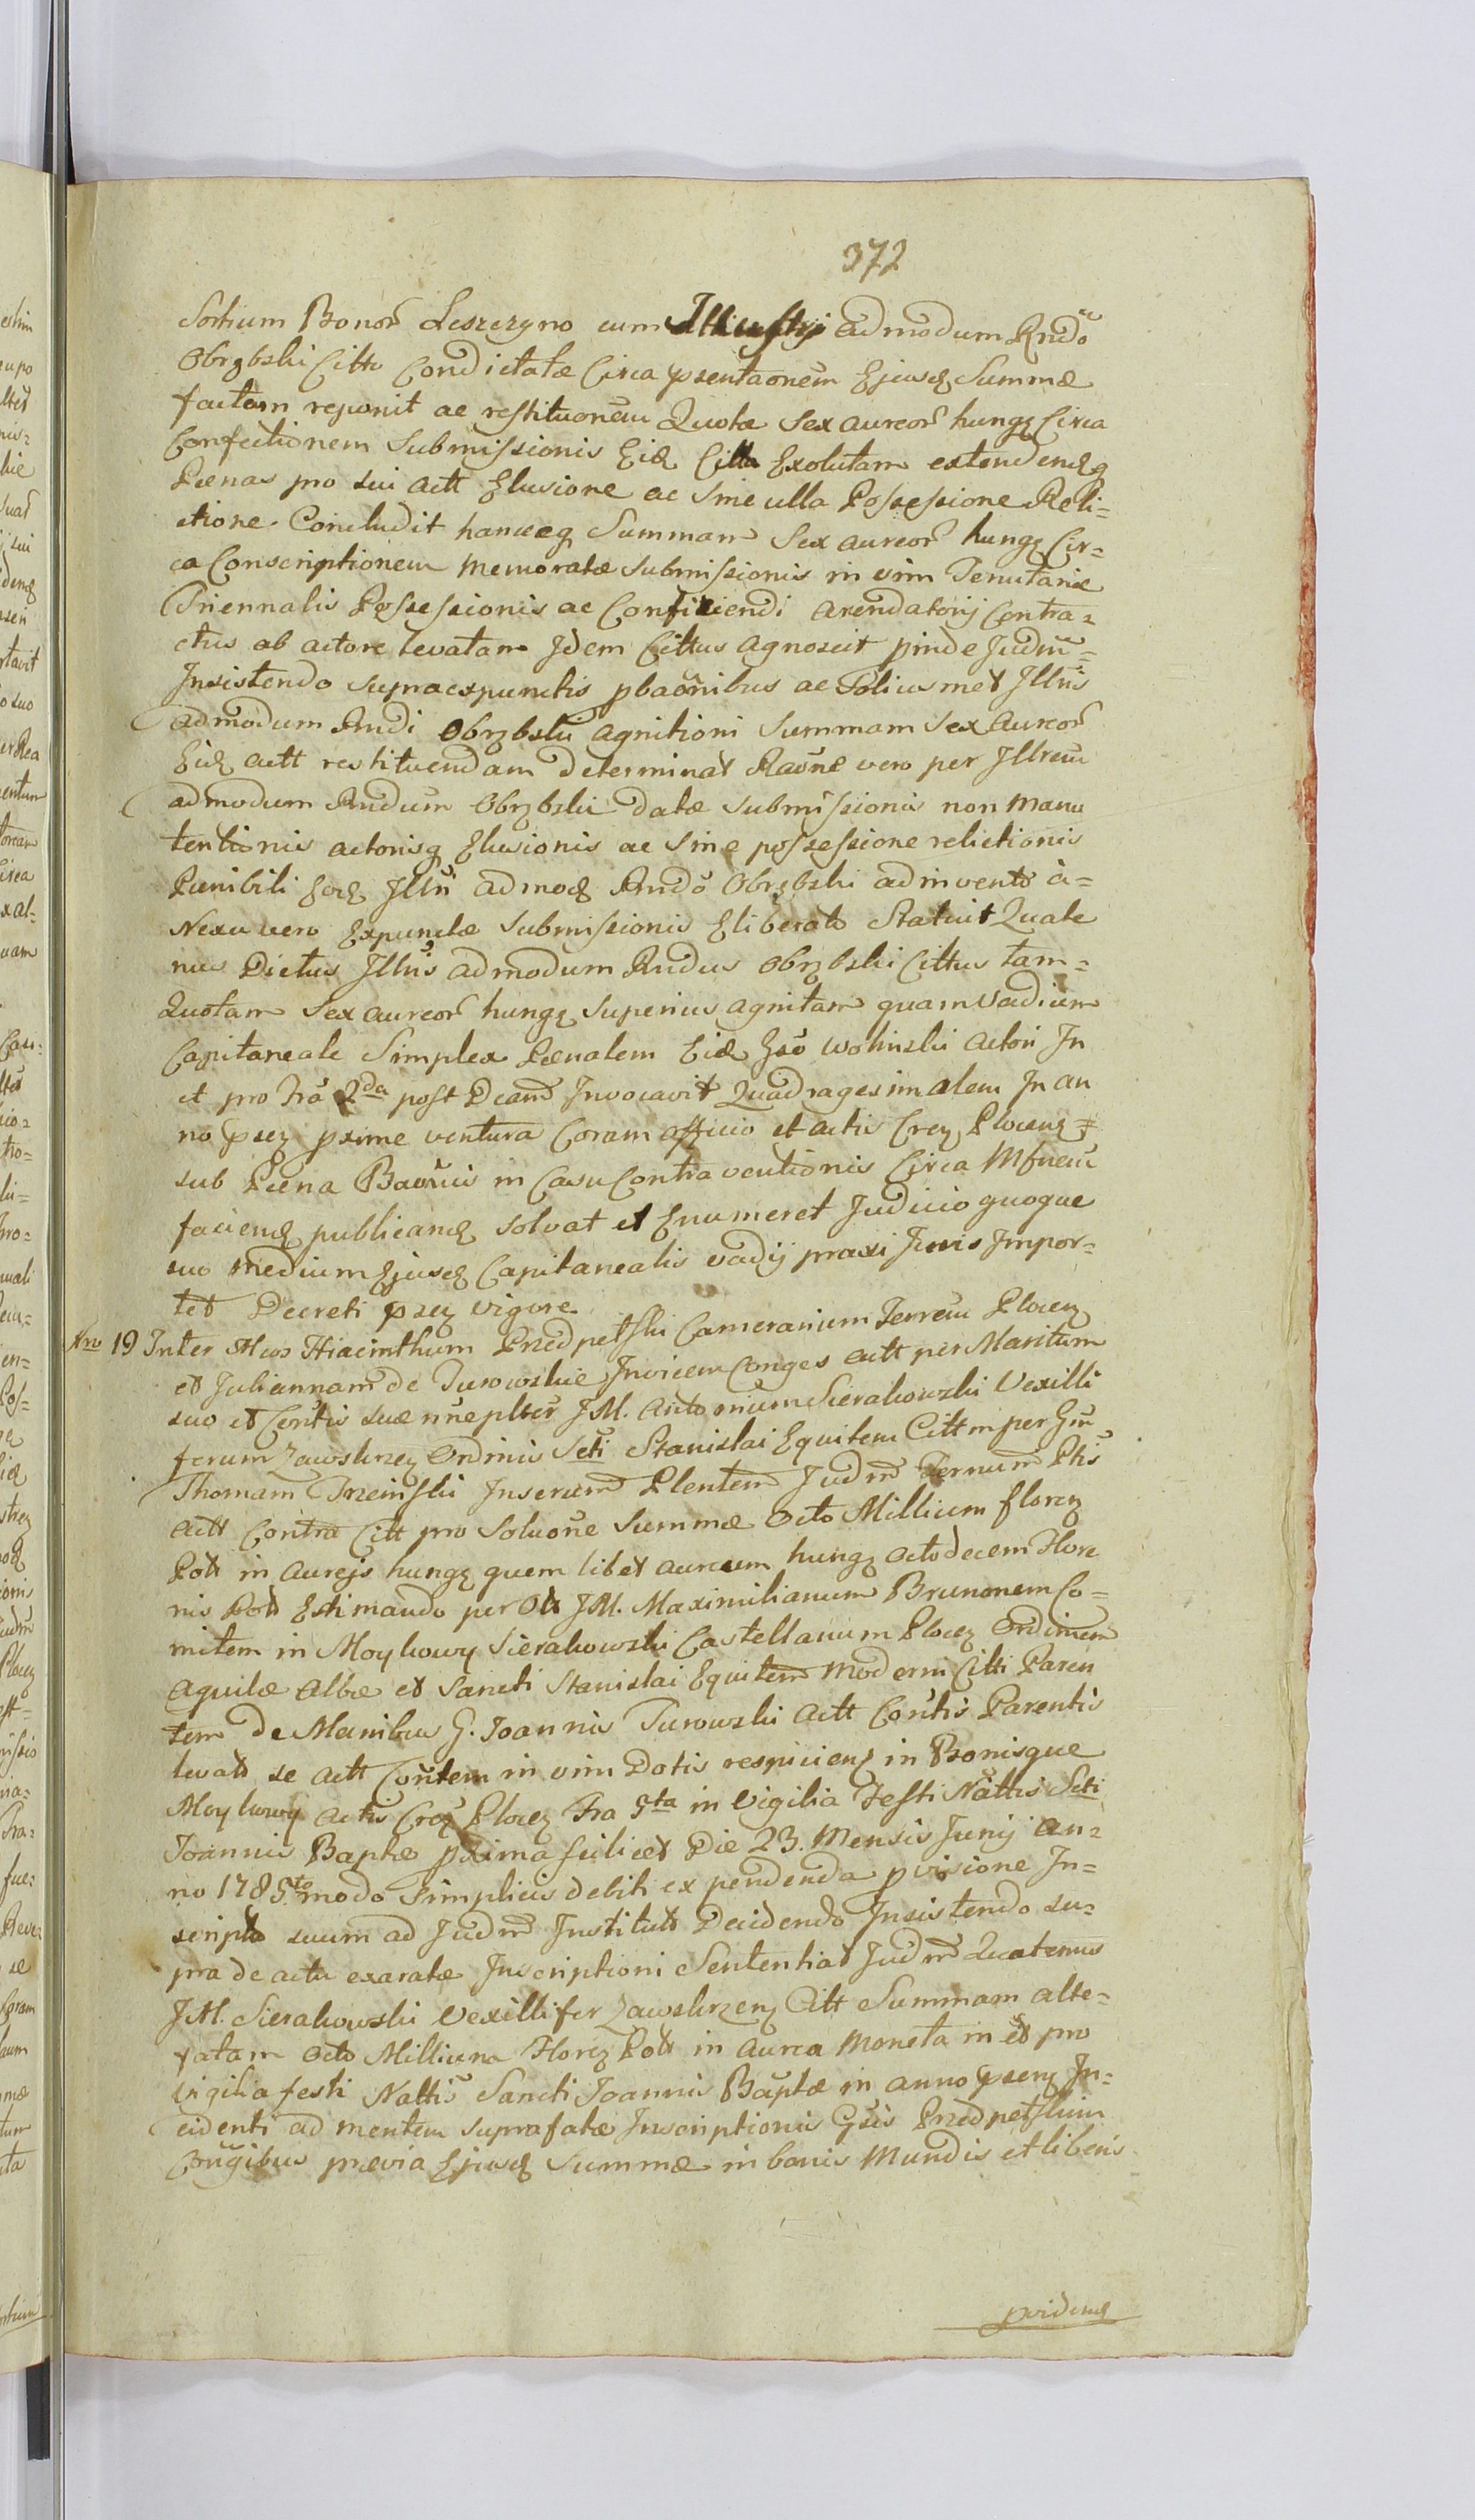 372
Sortium Bonor Leszczyno cum Illustri admodum Rndo
Obrębski Citto Condictatæ Circa psentaonem Ejusq Summæ
factam reponit ac restituonem Quotæ Sex aureor hung Circa
Confectionem Submissionis Eid Citto Exolutam extendendq
Pænas pro sui actt Elusione ac Sine ulla Possessione Reli=
ctione. Concludit hanceq Summam Sex aureor hung Cir=
ca Conscriptionem Memoratæ Submissionis in vim Tenutariæ
Triennalis Possessionis ac Conficiendi arendatorij Contra=
ctus ab actore levatam Idem Cittus agnoscit pinde Judm=
Insistendo supraexpunctis pbaonibus ac Solius met Illris
admodum Rndi Obrębski agnitioni Summam Sex Aureor
Eid actt restituendam determinat Raone vero per Illrem
admodum Rndum Obrębski datæ Submissionis non Manu
tentionis actorisq Elusionis ac Sine possessione relictionis
Pænibili Eoq Illri admod Rndo Obrębski adinvento à=
Nexu vero Expunctæ Submissionis Eliberato Statuit Quate
nus Dictus Illris admodum Rndus Obrębski Cittus tam=
Quotam Sex aureor hung superius agnitam quam Vadium
Capitaneale Simplex Pænalem Eid Gso Wolinski Actori In
et pro Fra 2da post Dcam Invocavit Quadragesimalem In an
no psen pxime ventura Coram Officio et actis Cren Plocens
sub Pæna Baonis in Casu Contraventionis Circa Mfnem
faciend publicand solvat et Enumeret Judicio quoque
suo Medium Ejusd Capitanealis vadij praxi Juris Impor=
tet Decreti psen vigore
Nro 19 Inter Mcos Hiacinthum Przedpełski Camerarium Terrem Plocen
et Juliannam de Turowskie Invicem Conges actt per Maritum
suo et Contis suæ nne plter JM. Antonium Sierakowski Vexilli
ferum Zawskrzen Ordinis Scti Stanislai Equitem Cittm per Gm
Thomam Trzcinski Inserum Plentem Judm Ternum Ptis
actt Contra Citt pro Soluone Summæ Octo Millium floren
Poll in Aureis hung quem libet aureum hung octodecem Flore
nis Poll Estimando per Olt JM. Maximilianum Brunonem Co=
mitem in Moykowy Sierakowski Castellanum Plocen Ordinum
Aquilæ Albæ et Sancti Stanislai Equitem Moderni Citti Paren
tem de Manibus G. Joannis Turowski Actt Contis Parentis
levat se actt Contem in vim Dotis respiciens in Bonisque
Moykowy Actis Cren Plocen Fra 5ta in Vigilia Festi Nattis Scti
Joannis Baptæ pxima scilicet Die 23. Mensis Junij an=
no 1785to modo simplicis debiti expendenda pvisione In=
scripta suum ad Judm Institut Decidendo Insistendo su=
pra de actu exaratæ Inscriptioni Sententiat Judm Quatenus
JM. Sierakowski Vexillifer Zawskrzen Citt Summam alte=
fatam octo Millium Floren Poll in Aurea Moneta in et pro
Vigilia festi Nattis Sancti Joannis Baptæ in anno psen In=
cidenti ad mentem suprafatæ Inscriptionis Gsis Przedpełskim
Congibus prævia Ejusd Summæ in bonis Mundis et liberis
pvidend